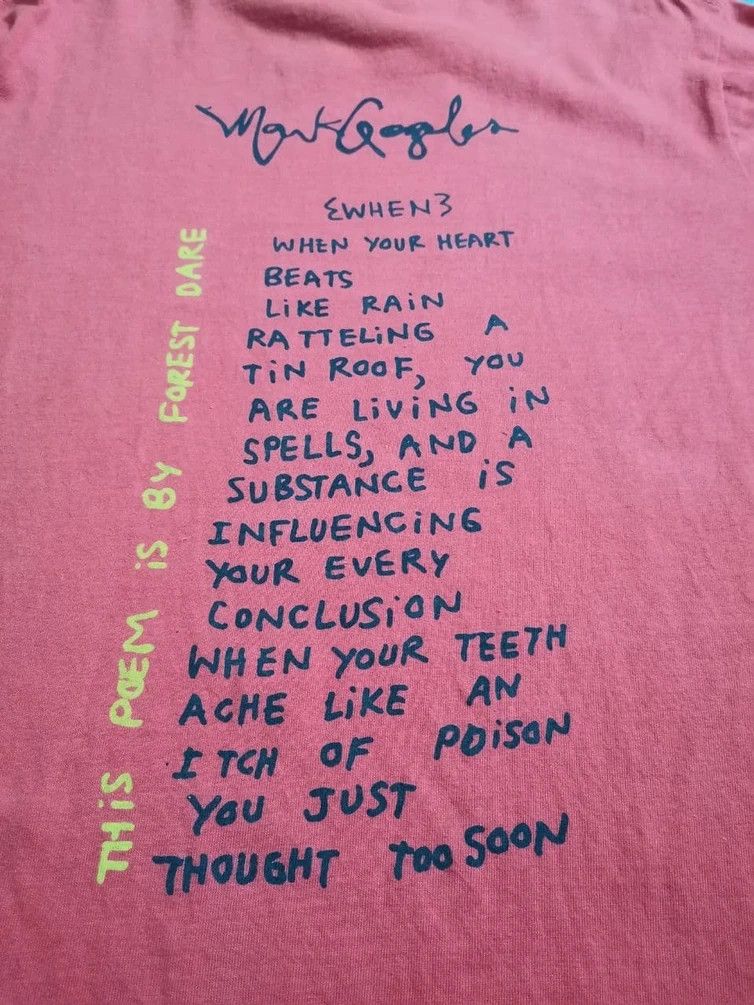 Mark Gonzales
{WHEN}
WHEN YOUR HEART
BEATS
LiKE RAiN
RATTELiNG A
TiN ROOF, YOU
ARE LiViNG iN
SPELLS, AND A
SUBSTANCE iS
INFLUENCiNG
YOUR EVERY
CONCLUSiON
WHEN YOUR TEETH
ACHE LiKE AN
ITCH OF POiSON
YOU JUST
THOUGHT TOO SOON
THiS POEM iS BY FOREST DARE